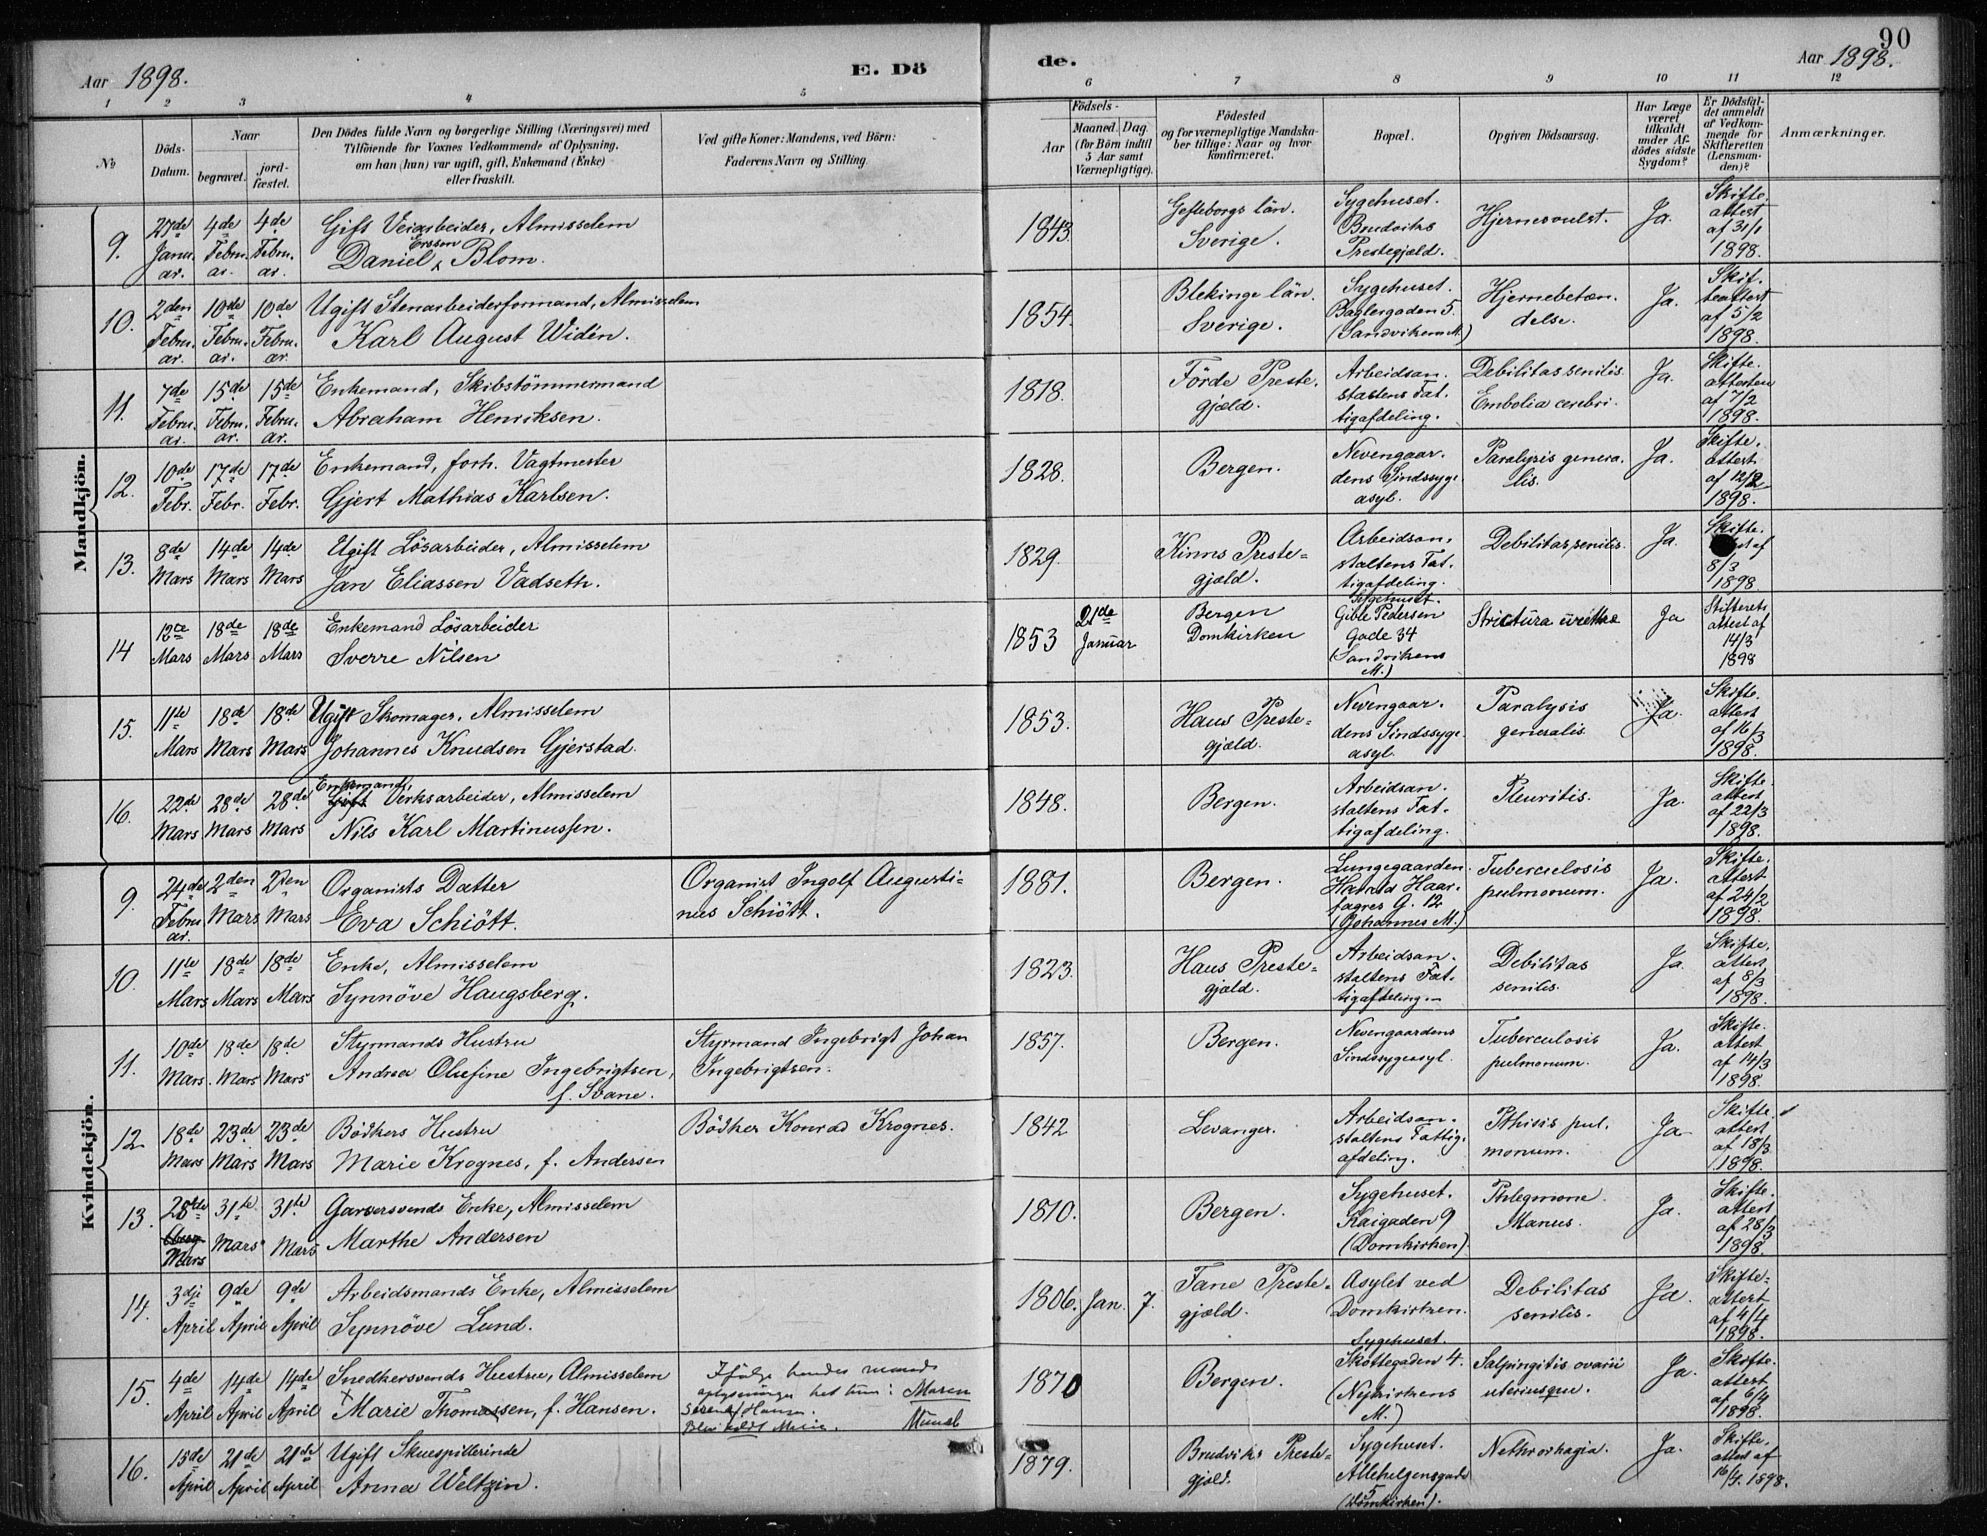 90
Aar 1898.
E. Dö
de.
Aar 1898.
1 2 3 4 5 6 7 8 9 10 11 12
№
Döds-
Datum.
Naar
begravet.
jord-
fæstet.
Den Dödes fulde Navn og borgerlige Stilling (Næringsvei) med
Tilföiende for Voxnes Vedkommende af Oplysning,
om han (hun) var ugift, gift, Enkemand (Enke)
eller fraskilt.
Ved gifte Koner: Mandens, ved Börn:
Faderens Navn og Stilling.
Födsels-
Aar
Maaned. Dag.
(for Börn indtil
5 Aar samt
Værnepligtige).
Födested
og for værnepligtige Mandska-
ber tillige: Naar og hvor
konfirmeret.
Bopæl.
Opgiven Dödsaarsag.
Har Læge
været
tilkaldt
under Af-
dödes sidste
Sygdom?
Er Dödsfal-
det anmeldt
af Vedkom-
mende for
Skifteretten
(Lensman-
den)?
Anmærkninger.
Mandkjön.
9.
27de
Janu-
ar.
4de
Febru-
ar.
4de
Febru-
ar.
Gift Veiarbeider, Almisselem
Ersson
Daniel Blom.
1843.
Gefleborgs län.
Sverige.
Sygehuset.
Brudviks
Prestegjæld.
Hjernesvulst.
Ja.
Skifte-
attest
af 31/1
1898.
10.
2den
Febru-
ar.
10de
Febru-
ar.
10de
Febru-
ar.
Ugift Stenarbeiderformand, Almisselem
Karl August Widén.
1854.
Blekinge län.
Sverige.
Sygehuset.
Baglergaden 5.
(Sandvikens M.)
Hjernebetæn-
delse.
Ja.
Skif-
teattest
af 5/2
1898.
11.
7de
Febru-
ar.
15de
Febru-
ar.
15de
Febru-
ar.
Enkemand, Skibstömmermand
Abraham Henriksen.
1818.
Förde Preste-
gjæld.
Arbeidsan-
staltens Fat-
tigafdeling.
Debilitas senilis.
Embolia cerebri.
Ja.
Skifte-
attesten
af 7/2
1898.
12.
10de
Febr.
17de
Febr.
17de
Febr.
Enkemand, forh. Vagtmester
Gjert Mathias Karlsen.
1828.
Bergen.
Nevengaar-
dens Sindssyge-
asyl.
Paralysis genera-
lis.
Ja.
Skifte-
attest
af 12/2
1898.
13.
8de
Mars
14de
Mars
14de
Mars
Ugift Lösarbeider, Almisselem
Jan Eliassen Vadseth.
1829.
Kinns Preste-
gjæld.
Arbeidsan-
staltens Fat-
tigafdeling.
Debilitas senilis.
Ja.
Skifte-
af
8/3
1898
14
12te
Mars
18de
Mars
18de
Mars
Enkemand Lösarbeider
Sverre Nilsen
1853
21de
Januar
Bergen
Domkirken
Sygehuset.
Gible Pedersen
Gade 34
(Sandvikens
M.)
Strictura urethræ
Ja
Skifterets
attest af
14/3
1898
15.
11te
Mars
18de
Mars
18de
Mars
Ugift Skomager, Almisselem
Johannes Knudsen Gjerstad.
1853.
Haus Preste-
gjæld.
Nevengaar-
dens Sindssyge-
asyl.
Paralysis
generalis.
Ja.
Skifte-
attest
af 16/3
1898.
16.
22de
Mars
28de
Mars
28de
Mars
Enkemand,
Gift Verksarbeider, Almisselem
Nils Karl Martinussen.
1848.
Bergen.
Arbeidsan-
staltens Fat-
tigafdeling.
Pleuritis.
Ja.
Skifte-
attest
af 22/3
1898.
Kvindekjön.
9.
24de
Febru-
ar.
2den
Mars
2den
Mars
Organists Datter
Eva Schiött.
Organist Ingolf Augusti-
nus Schiött.
1881.
Bergen.
Lungegaarden.
Harald Haar-
fagres G. 12
(Johannes M.)
Tuberculosis
pulmonum.
Ja.
Skifte-
attest
af 24/2
1898.
10.
11te
Mars
18de
Mars
18de
Mars
Enke, Almisselem
Synnöve Haugsberg.
1823.
Haus Preste-
gjæld.
Arbeidsan-
staltens Fat-
tigafdeling.
Debilitas
senilis.
Ja.
Skifte-
attest
af 8/3
1898.
11.
10de
Mars.
18de
Mars
18de
Mars
Styrmands Hustru
Andrea Olufine Ingebrigtsen,
f. Svane.
Styrmand Ingebrigt Johan
Ingebrigtsen.
1857.
Bergen.
Nevengaardens
Sindssygeasyl.
Tuberculosis
pulmonum.
Ja.
Skifte-
attest
af 14/3
1898.
12.
18de
Mars
23de
Mars
23de
Mars
Bödkers Hustru
Marie Krognes, f. Andersen
Bödker Konrad Krognes.
1842
Levanger.
Arbeidsan-
staltens Fattig-
afdeling.
Pthisis pul-
monum.
Ja
Skifte-
attest
af 18/3
1898.
13.
28de
Mars
31te
Mars
31te
Mars
Garversvends Enke, Almisselem
Marthe Andersen
1810.
Bergen.
Sygehuset.
Kaigaden 9
(Domkirken)
Phlegmone
Manus.
Ja.
Skifte-
attest
af 28/3
1898.
14.
3die
April
9de
April
9de
April
Arbeidsmands Enke, Almisselem
Synnöve Lund.
1806. Jan. 7.
Fane Preste-
gjæld.
Asylet ved
Domkirken.
Debilitas
senilis.
Ja.
Skifte-
attest
af 4/4
1898.
15.
4de
April
14de
April
14de
April
Snedkersvends Hustru, Almisselem
Marie Thomassen, f. Hansen.
Ifölge hendes mands
oplysninger het hun: Maren
Hansen.
Blev kaldt Marie.
1870
Bergen.
Sygehuset.
Skottegaden 4.
(Nykirkens
M.)
Salpingitis ovarii
uteriusque.
Ja.
Skifte-
attest
af 6/4
1898.
16.
15de
April
21de
April
21de
April
Ugift Skuespillerinde
Anna Weltzin.
1879.
Brudviks Preste-
gjæld.
Sygehuset.
Allehelgensgade
5
(Domkirken).
Nethrorhagia.
Ja.
Skifte-
attest af
16/4 1898.